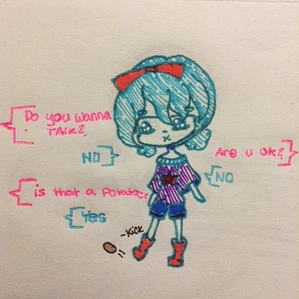 Do you wanna
TALK?
NO
Are u ok?
NO
is that a Potatoe?
Yes
-Kick